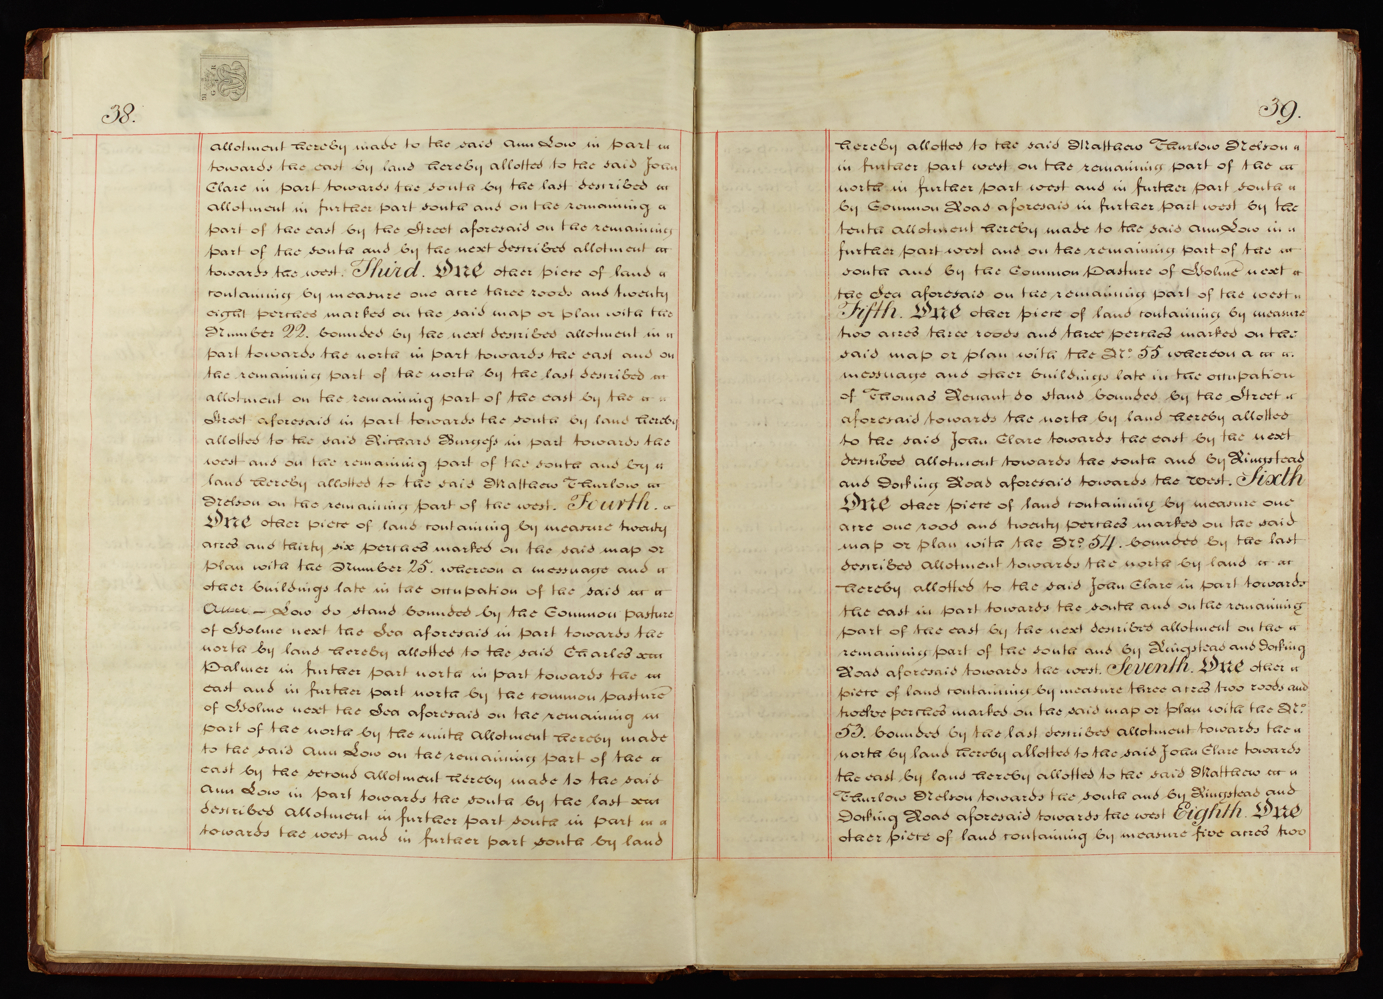 38.
allotment hereby made to the said Ann Low in part
towards the east by land hereby allotted to the said John
Clare in part towards the south by the last described
allotment in further part south and on the remaining
part of the east by the Street aforesaid on the remaining
part of the south and by the next described allotment
towards the west. Third. One other piece of land
containing by measure one acre three roods and twenty
eight perches marked on the said map or plan with the
Number 22. bounded by the next described allotment in
part towards the north in part towards the east and on
the remaining part of the north by the last described
allotment on the remaining part of the east by the
Street aforesaid in part towards the south by land hereby
allotted to the said Richard Burgess in part towards the
west and on the remaining part of the south and by
land hereby allotted to the said Matthew Thurlow
Nelson on the remaining part of the west. Fourth.
One other piece of land containing by measure twenty
acres and thirty six perches marked on the said map or
plan with the Number 25. whereon a messuage and
other buildings late in the occupation of the said
Ann Low do stand bounded by the Common pasture
of Holme next the Sea aforesaid in part towards the
north by land hereby allotted to the said Charles
Palmer in further part north in part towards the
east and in further part north by the common pasture
of Holme next the Sea aforesaid on the remaining
part of the north by the ninth allotment hereby made
to the said Ann Low on the remaining part of the
east by the second allotment hereby made to the said
Ann Low in part towards the south by the last
described allotment in further part south in part
towards the west and in further part south by land
39.
hereby allotted to the said Matthew Thurlow Nelson
in further part west on the remaining part of the
north in further part west and in further part south
by Common Road aforesaid in further part west by the
tenth allotment hereby made to the said Ann Low in
further part west and on the remaining part of the
south and by the Common Pasture of Holme next
the Sea aforesaid on the remaining part of the west
Fifth. One other piece of land containing by measure
two acres three roods and three perches marked on the
said map or plan with the No. 55 whereon a
messuage and other buildings late in the occupation
of Thomas Renant do stand bounded by the Street
aforesaid towards the north by land hereby allotted
to the said John Clare towards the east by the next
described allotment towards the south and by Ringstead
and Docking Road aforesaid towards the West. Sixth
One other piece of land containing by measure one
acre one rood and twenty perches marked on the said
map or plan with the No. 54. bounded by the last
described allotment towards the north by land
hereby allotted to the said John Clare in part towards
the east in part towards the south and on the remaining
part of the east by the next described allotment on the
remaining part of the south and by Ringstead and Docking
Road aforesaid towards the west. Seventh. One other
piece of land containing by measure three acres two roods and
twelve perches marked on the said map or plan with the No.
53. bounded by the last described allotment towards the
north by land hereby allotted to the said John Clare towards
the east by land hereby allotted to the said Matthew
Thurlow Nelson towards the south and by Ringstead and
Docking Road aforesaid towards the west Eighth. One
other piece of land containing by measure five acres two